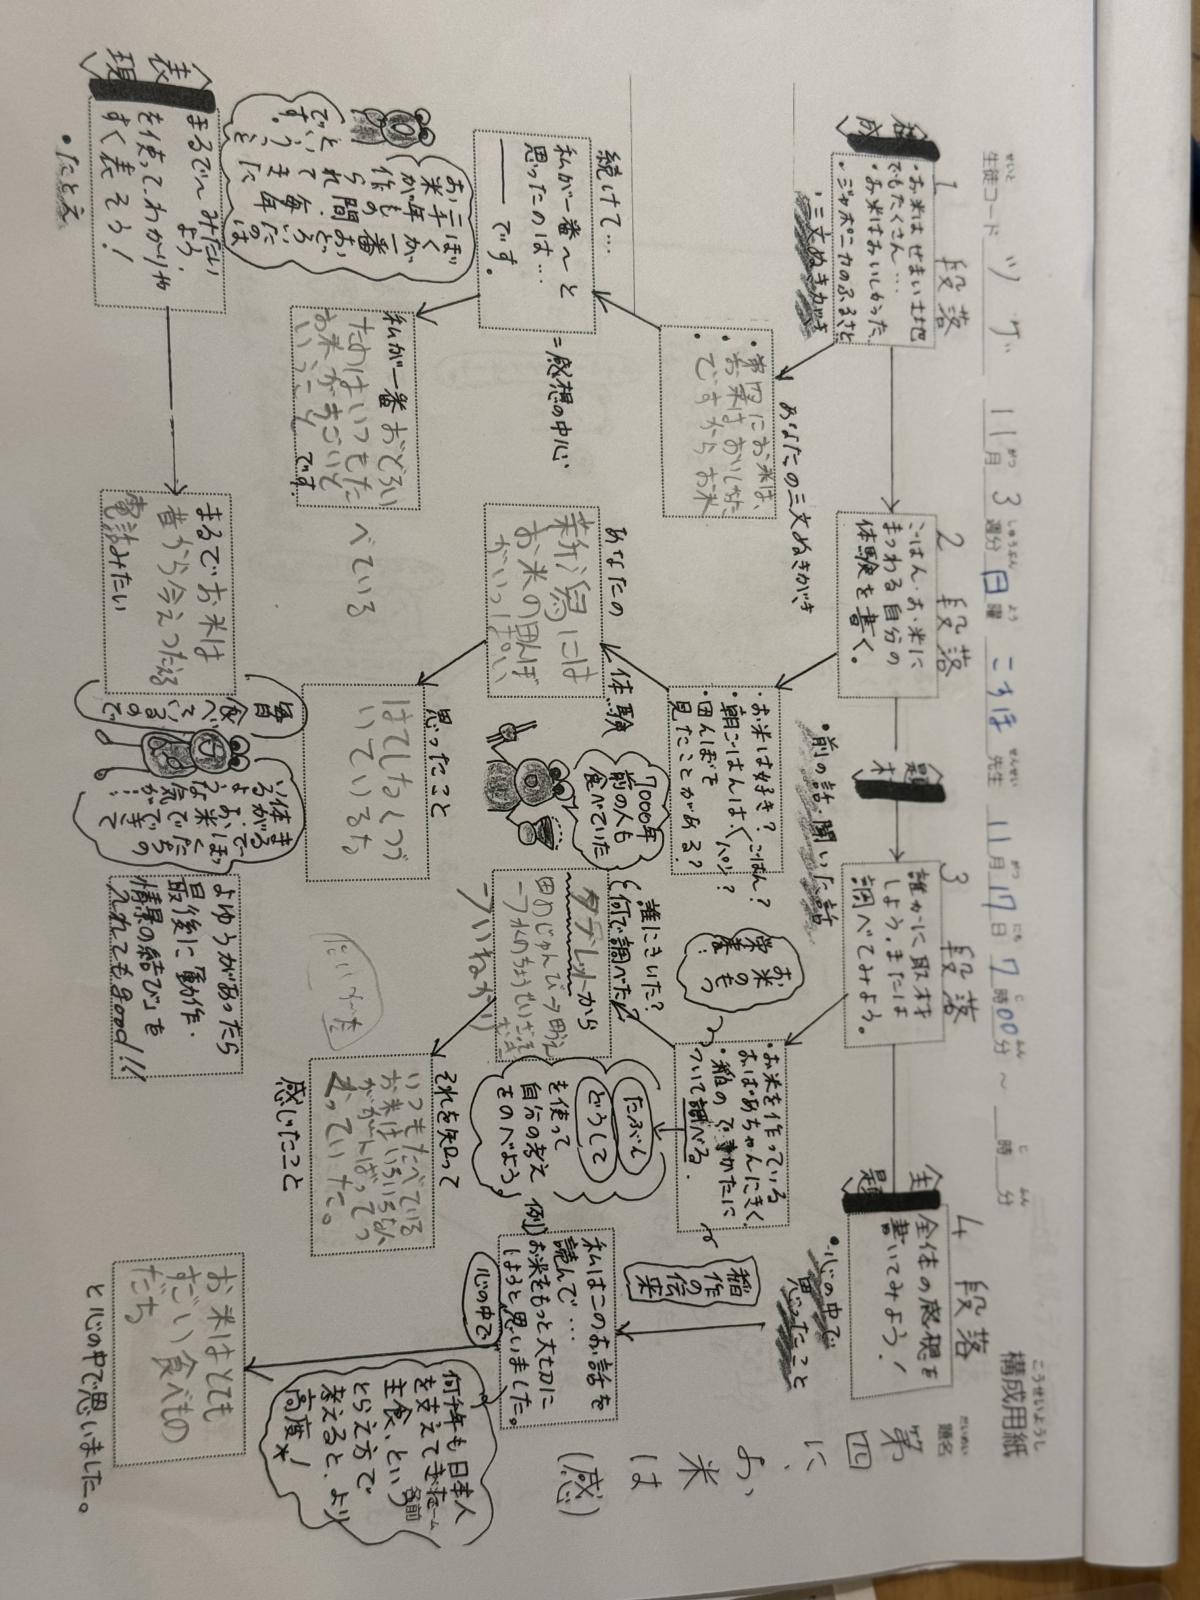 構成用紙
こうせいようし
題名
だいめい
第四に、お米は(感)
生徒コード
せいと
ツゲ
11月3週分日曜
こすほ先生
11月17日7時00分～
時 分
構成
1段落
・お米はせまい土地
でもたくさん…
・お米はおいしかった
・ジャポニカのふるさと
・三文ぬきがき
あなたの三文ぬきがき
・第四にお米は、
・お米はおいしかった
・ですからお米
続けて…
私が一番～と
思ったのは…
――です。
=感想の中心
お米が一番
ぼくが一番おどろいたのは
三千年もの間
作られてきた
ということ
です。
私が一番おどろい
たのはいつもたべている
お米がすごいと
いうこと
です。
表現
まるで～みたい
ようを使って、わかりや
すく表そう！
・たとえ
まるでお米は
昔から今えつたえる
電話みたい
毎日
食べて
いるので
まるで、ぼくたちの
体がお米で
できて
いるような
気が…
2段落
ごはん・お米に
まつわる自分の
体験を書く。
・前の話・聞いた話
・お米は好き?
・朝ごはんは、〈ごはん?パン?
・田んぼを
見たことがある?
あなたの体験
新潟には
お米の田んぼ
がいっぱい
7000年
前の人も
食べていた
思ったこと
はてしなくつづ
いているな
題材
3段落
誰かに取材
しよう。または
調べてみよう。
お米のもつ
栄養!
・お米を作っている
おばあちゃんにきく
・稲のでき方に
ついて調べる。
誰にきいた?
何で調べた?
タブレットから
田のじゅんび→田うえ
→水のちょうせいざっ草
→いねかり
たぶん
どうして
を使って
自分の考え
をのべよう
それを知って
感じたこと
いつもたべている
お米はいろいろな人
ががんばってつ
くっていた。
にいがた
よゆうがあったら
最後に動作・
情景の結び」を
入れてもgood!!!
主題
4段落
全体の感想を
書いてみよう！
・心の中で
思ったこと
稲作の伝来
例)私はこのお話を
読んで…
お米をもっと大切に
しようと思いました。
心の中で
何千年も日本人
を支えてきた
主食、という
とらえ方で
考えると、より
高度☆!
お米はとても
すごい食べもの
だな
と心の中で思いました。